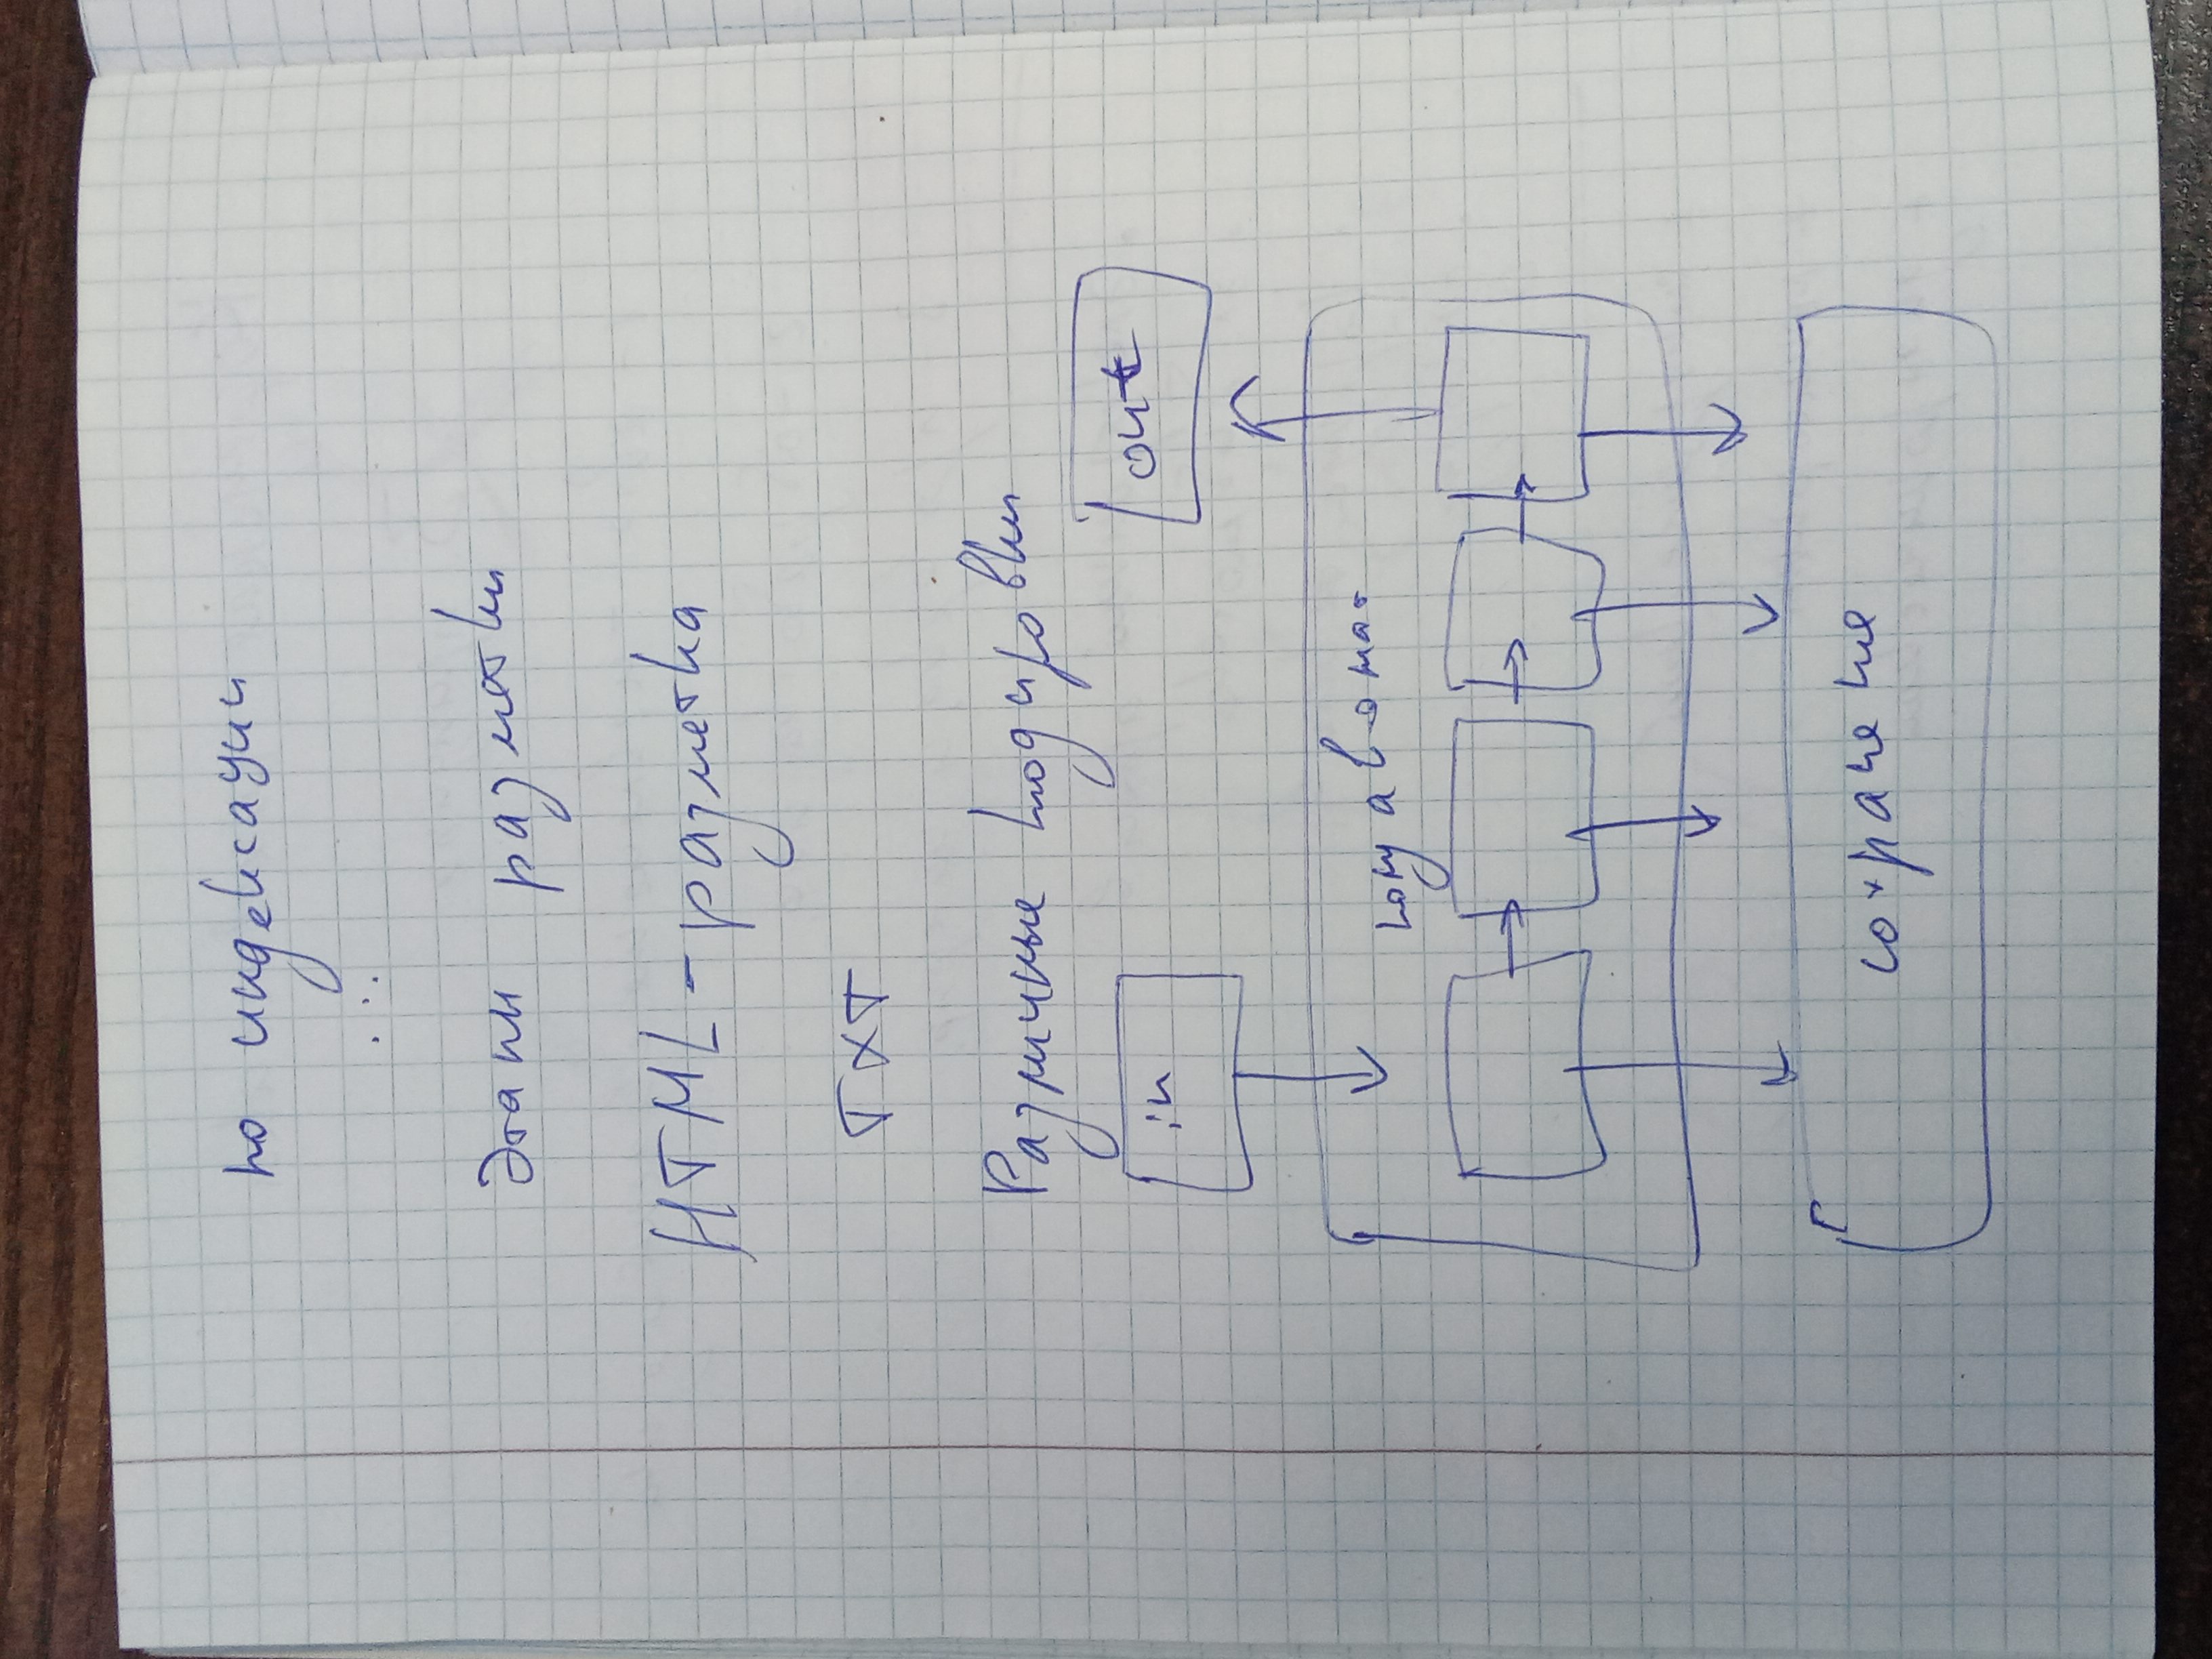 по индексации
...
Этапы разметки
HTML-разметка
TXT
Различные кодировки
in
out
сохранение